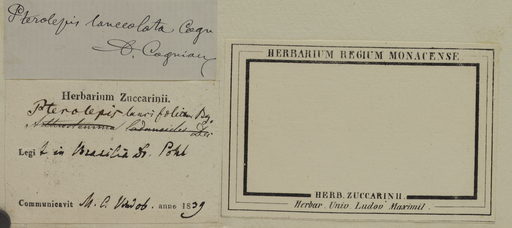 Pterolepis lanceolata Cogn
A. Cogniaux
Herbarium Zuccarinii.
Pterolepis laurifolia
Legit in Brasilia Dr. Pohl
Communicavit M. C. Vindob. anno 1839
HERBARIUM REGIUM MONACENSE
HERB. ZUCCARINII.
Herbar. Univ. Ludov. Maximil.